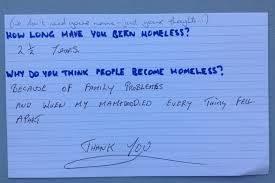 (we don't need your name - just your thoughts..)
HOW LONG HAVE YOU BEEN HOMELESS?
2 ½ YEARS.
WHY DO YOU THINK PEOPLE BECOME HOMELESS?
BECAUSE OF FAMILY PROBLEMS
AND WHEN MY MAM DIED EVERY THING FELL
APART
THANK YOU